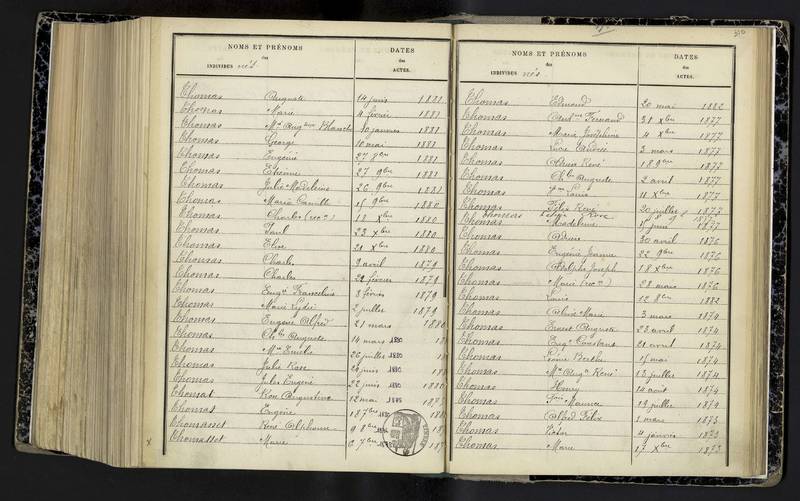 NOMS ET PRÉNOMS
DATES
des
INDIVIDUS nés
des
ACTES.
Thomas Auguste 14 juin 1881
Thomas Marie 4 février 1881
Thomas Mie Augtine Blanche 10 janvier 1881
Thomas George 10 mai 1881
Thomas Eugénie 27 8bre 1881
Thomas Etienne 27 9bre 1881
Thomas Julie Madeleine 26 9bre 1881
Thomas Marie Camille 15 9bre 1880
Thomas Charles (recce) 18 Xbre 1880
Thomas Paul 23 Xbre 1880
Thomas Elise 21 Xbre 1880
Thomas Charles 9 avril 1879
Thomas Charles 22 février 1879
Thomas Eugie Franceline 8 février 1879
Thomas Marie Lydie 2 juillet 1879
Thomas Eugène Alfred 21 mars 1880
Thomas Chles Auguste 14 mars 1880
Thomas Mie Emélie 26 juillet 1880
Thomas Julie Rose 29 juin 1880
Thomas Jules Eugène 22 juin 1880
Thomat Rose Augustine 12 mai 1878
Thomat Eugène 18 7bre
Thomasset René Alphonse 9 8bre
Thomasset Marie 7bre
NOMS ET PRÉNOMS
DATES
des
INDIVIDUS nés
des
ACTES.
Thomas Edmond 20 mai 1882
Thomas Fernand 31 Xbre 1877
Thomas Marie Joséphine 4 Xbre 1877
Thomas André 3 mars 1877
Thomas René 18 9bre 1877
Thomas Chles Auguste 2 avril 1877
Thomas Louis 11 Xbre 1877
Thomas Félix René 20 juillet 1877
Thomas Rose
Thomas Madeleine juin 1877
Thomas 30 avril 1876
Thomas Eugénie Jeanne 22 9bre 1876
Thomas Adolphe Joseph 18 Xbre 1876
Thomas Marie (recce) 28 mars 1876
Thomas Louis 10 8bre 1882
Thomas Marie 3 mars 1874
Thomas Ernest Auguste 22 avril 1874
Thomas Eugne Constant 21 avril 1874
Thomas Berthe 15 mai 1874
Thomas Mie Augte René 13 juillet 1874
Thomas Henry 14 août 1874
Thomas Maurice 19 juillet 1874
Thomas Alfred Félix 1 mars 1873
Thomas 4 janvier 1873
Thomas Marie 17 Xbre 1873